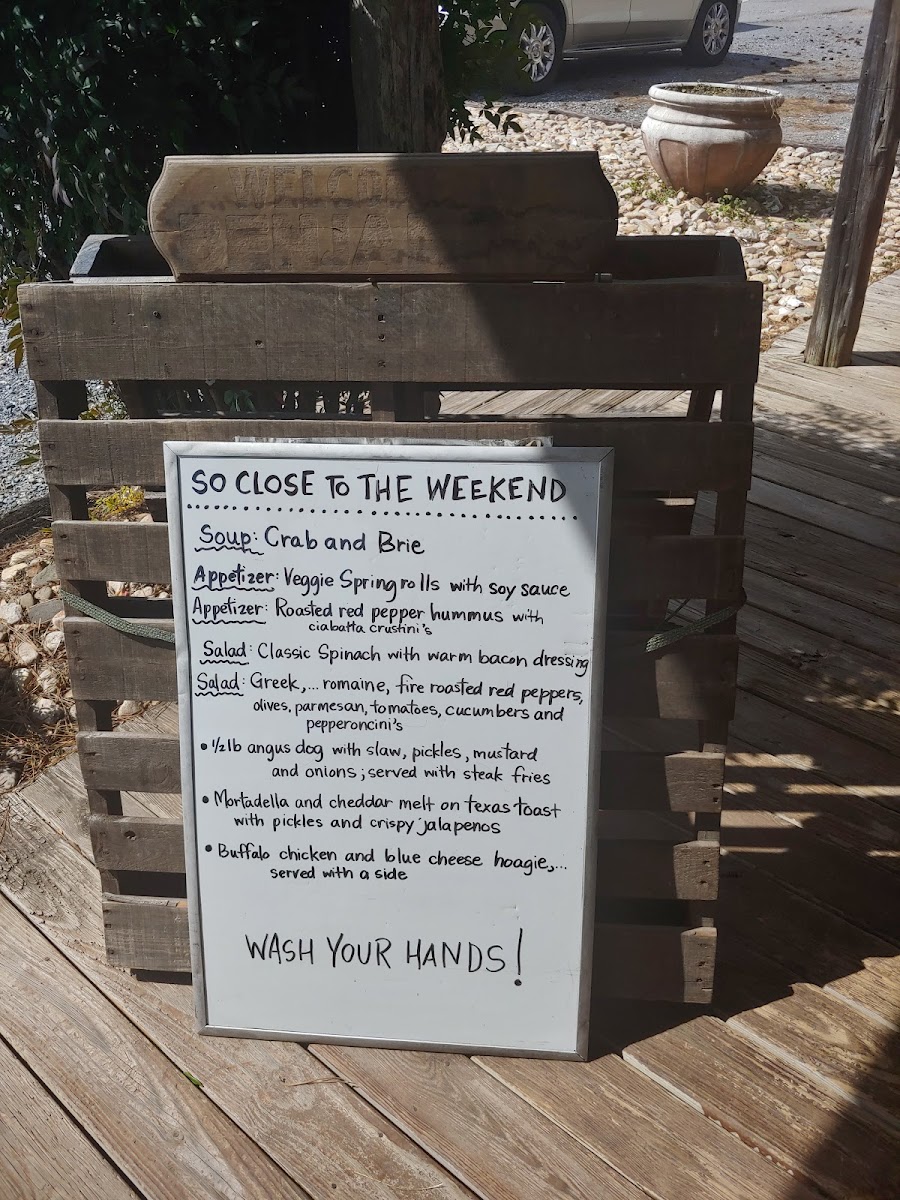 WELCOME
SO CLOSE TO THE WEEKEND
Soup: Crab and Brie
Appetizer: Veggie Spring rolls with soy sauce
Appetizer: Roasted red pepper hummus with
ciabatta crustini's
Salad: Classic Spinach with warm bacon dressing
Salad: Greek,... romaine, fire roasted red peppers,
olives, parmesan, tomatoes, cucumbers and
pepperoncini's
• 1/2 lb angus dog with slaw, pickles, mustard
and onions; served with steak fries
• Mortadella and cheddar melt on texas toast
with pickles and crispy jalapenos
• Buffalo chicken and blue cheese hoagie,...
served with a side
WASH YOUR HANDS!